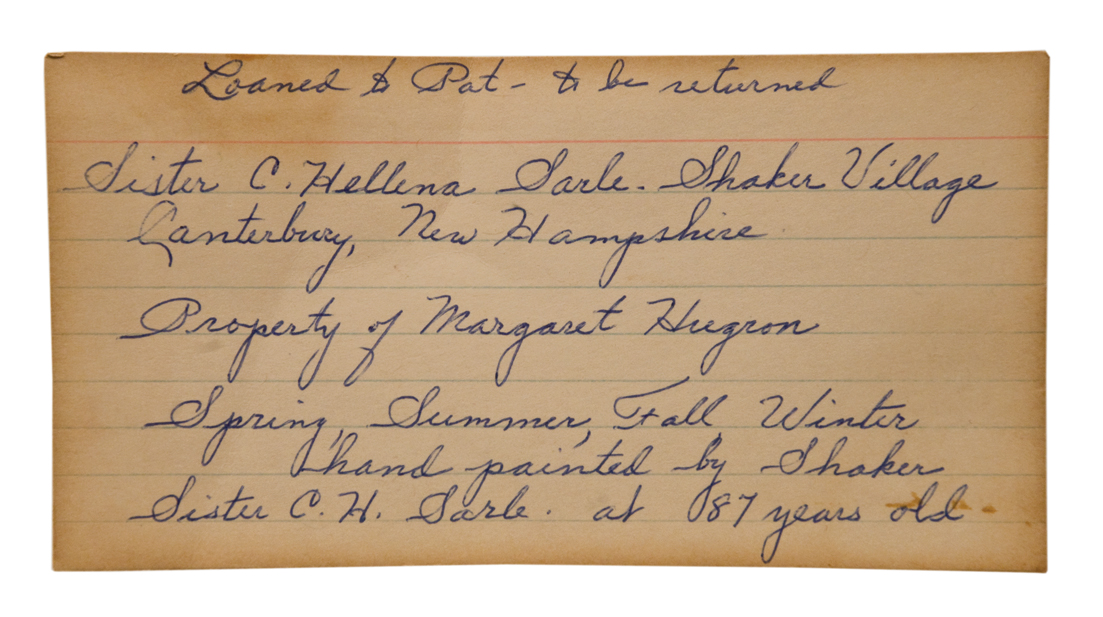 Loaned to Pat - to be returned
Sister C. Hellena Sarle. Shaker Village
Canterbury, New Hampshire
Property of Margaret Hugron
Spring, Summer, Fall, Winter
hand painted by Shaker
Sister C. H. Sarle. at 87 years old